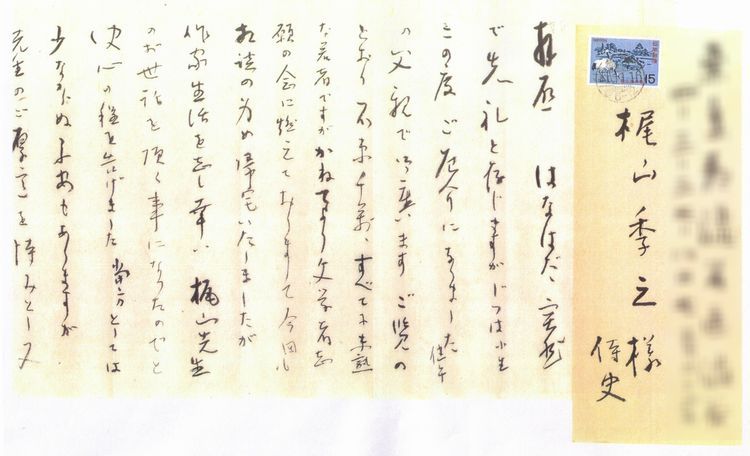 梶山季之様
侍史
15
拝啓 はなはだ 突然
で失礼と存じますがじつは小生
この度ご厄介になりました
の父親でございます ご覧の
とおり 千萬、すべて未熟
な若者ですがかねてより文学者志
願の念に燃えておりまして今回も
相談の為め帰宅いたしましたが
作家生活を志し幸い 梶山先生
のお世話を頂く事になったのでと
決心の程を告げました 当方としては
少なからぬ不安もありますが
先生のご厚意を恃みとし又